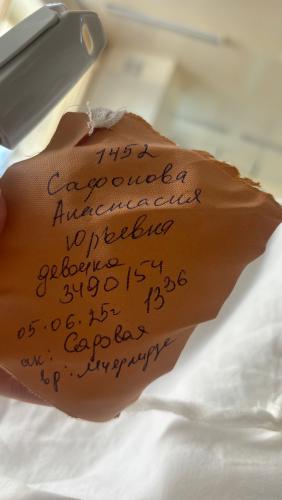 1452
Сафонова
Анастасия
Юрьевна
девочка
3490/54
05.06.25г 1336
ак: Садовая
вр: